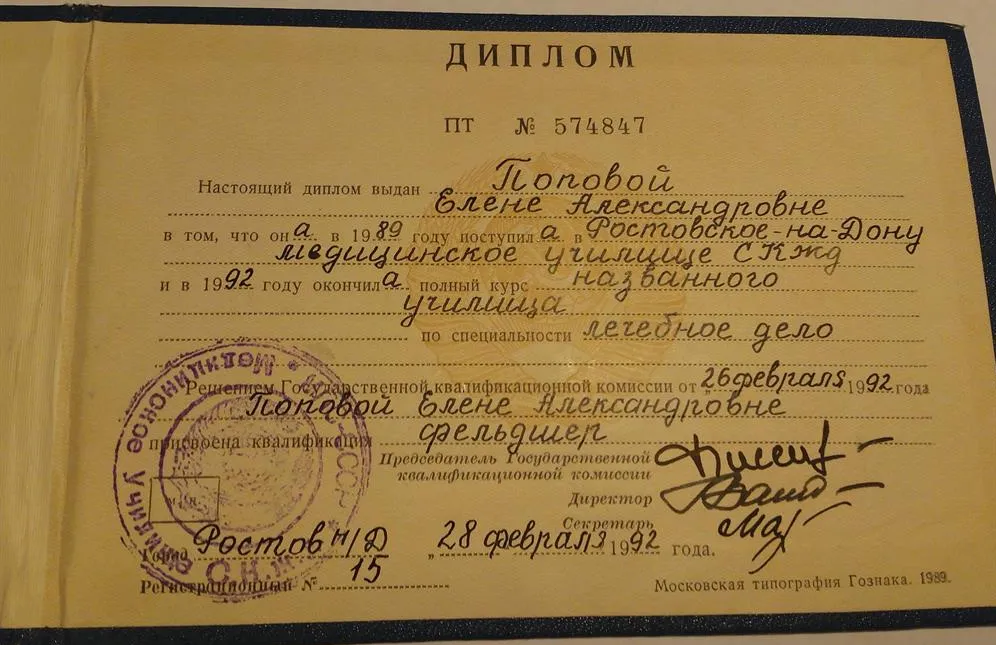 ДИПЛОМ
ПТ № 574847
Настоящий диплом выдан Поповой
Елене Александровне
в том, что он а в 1989 году поступил а в Ростовское-на-Дону
медицинское училище СКжд
и в 1992 году окончил а полный курс названного
училища
по специальности лечебное дело
Решением Государственной квалификационной комиссии от „26 февраля 1992 года
Поповой Елене Александровне
присвоена квалификация фельдшер
Председатель Государственной
квалификационной комиссии
Директор
Секретарь
М.П.
Город Ростов н/Д „28 февраля 1992 года.
Регистрационный № 15
Московская типография Гознака. 1989.